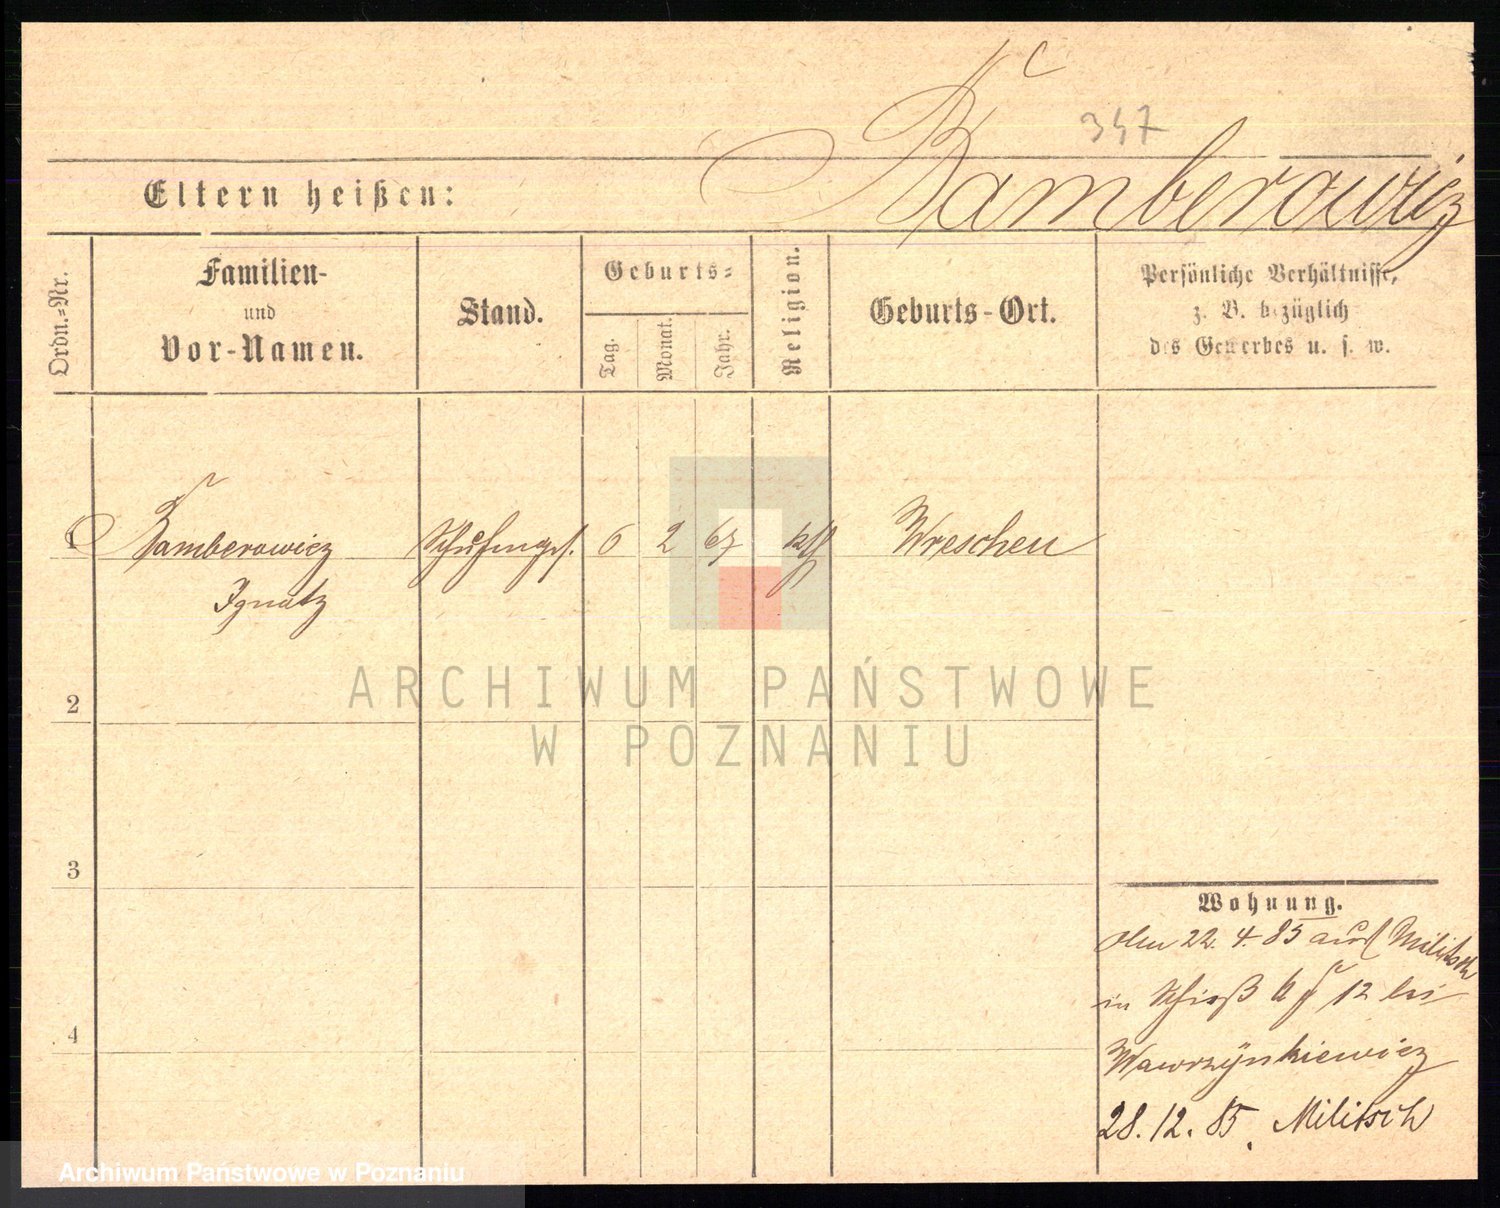 C
347
Bamberowicz
Eltern heißen:
Ordn.-Nr.
Familien-
und
Vor-Namen.
Stand.
Geburts-
Tag.
Monat.
Jahr.
Religion.
Geburts-Ort.
Persönliche Verhältnisse,
z. B. bezüglich
des Gewerbes u. s. w.
1 Bamberowicz Schuhmges. 6 2 67 kth Wreschen
Ignatz
ARCHIWUM PAŃSTWOWE
W POZNANIU
2
3
4
Wohnung.
22. 4. 85 aus Militsch
in Schieß 12 bei
Wawrzynkiewicz
28. 12. 85. Militsch
Archiwum Państwowe w Poznaniu